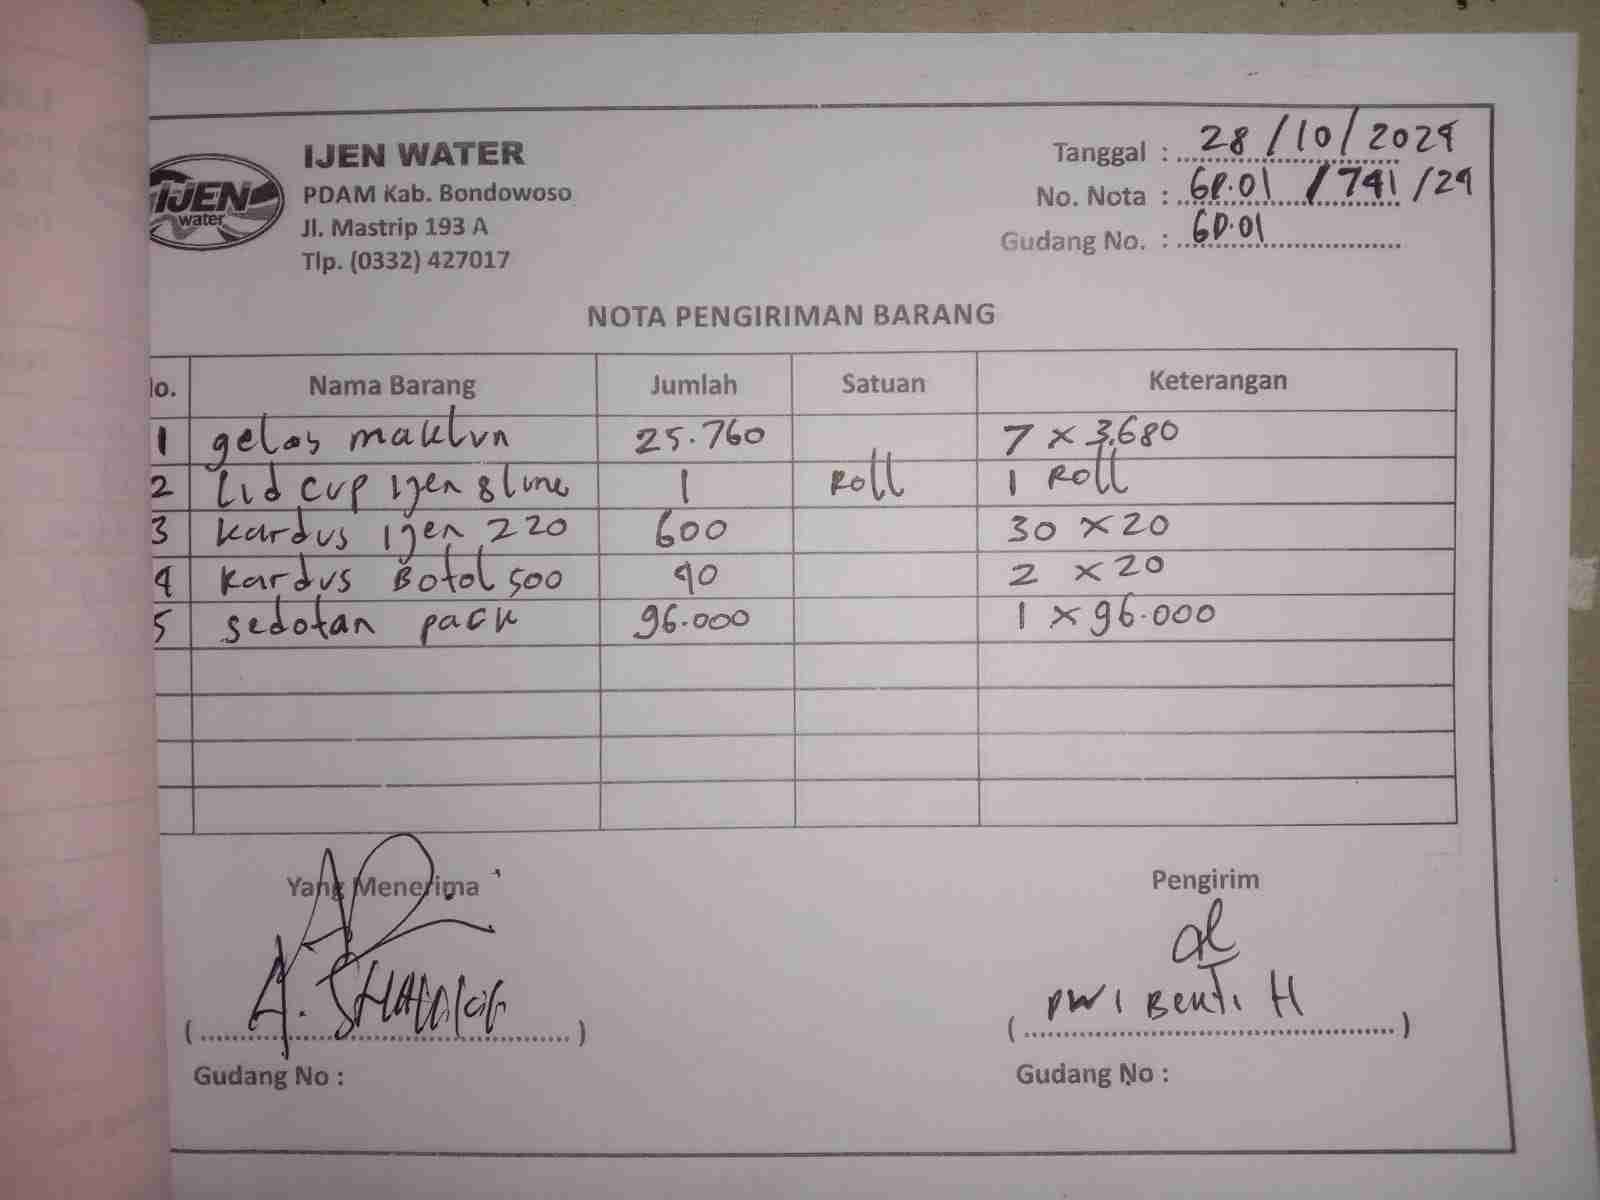 IJEN
water
IJEN WATER
PDAM Kab. Bondowoso
Jl. Mastrip 193 A
Tlp. (0332) 427017
Tanggal : 28/10/2024
No. Nota : GD.01 /741/24
Gudang No. : GD.01
NOTA PENGIRIMAN BARANG
No. Nama Barang Jumlah Satuan Keterangan
1 gelas maklun 25.760 7 x 3.680
2 Lid cup ijen 8 line 1 Roll 1 Roll
3 kardus ijen 220 600 30 x 20
4 kardus Botol 500 40 2 x 20
5 sedotan pack 96.000 1 x 96.000
Yang Menerima Pengirim
(A.) (DWI H)
Gudang No : Gudang No :